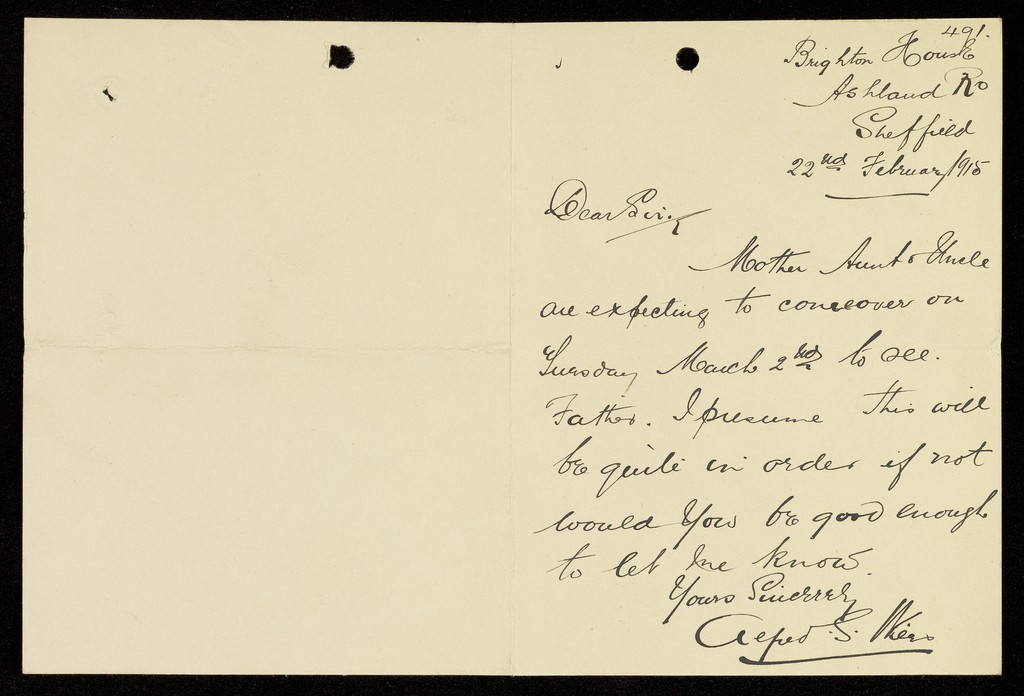 491.
Brighton House
Ashland Rd
Sheffield
22nd February/1915
Dear Sir,
Mother Aunt & Uncle
are expecting to come over on
Tuesday March 2nd to see
Father. I presume this will
be quite in order if not
would you be good enough
to let me know.
Yours Sincerely
Alfred. S.